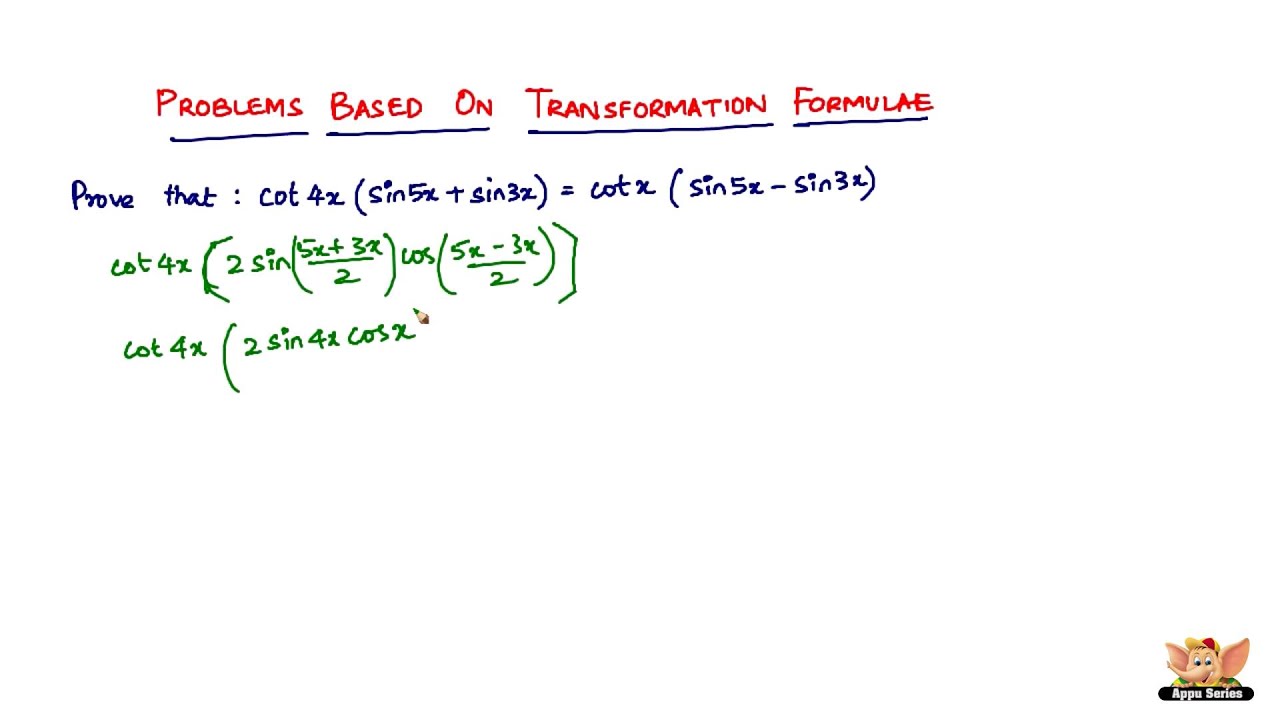 PROBLEMS BASED ON TRANSFORMATION FORMULAE
Prove that : cot 4x (sin5x + sin3x) = cot x (sin5x − sin3x)
cot 4x [2 sin((5x + 3x)/2) cos((5x − 3x)/2)]
cot 4x (2 sin 4x cos x
Appu Series